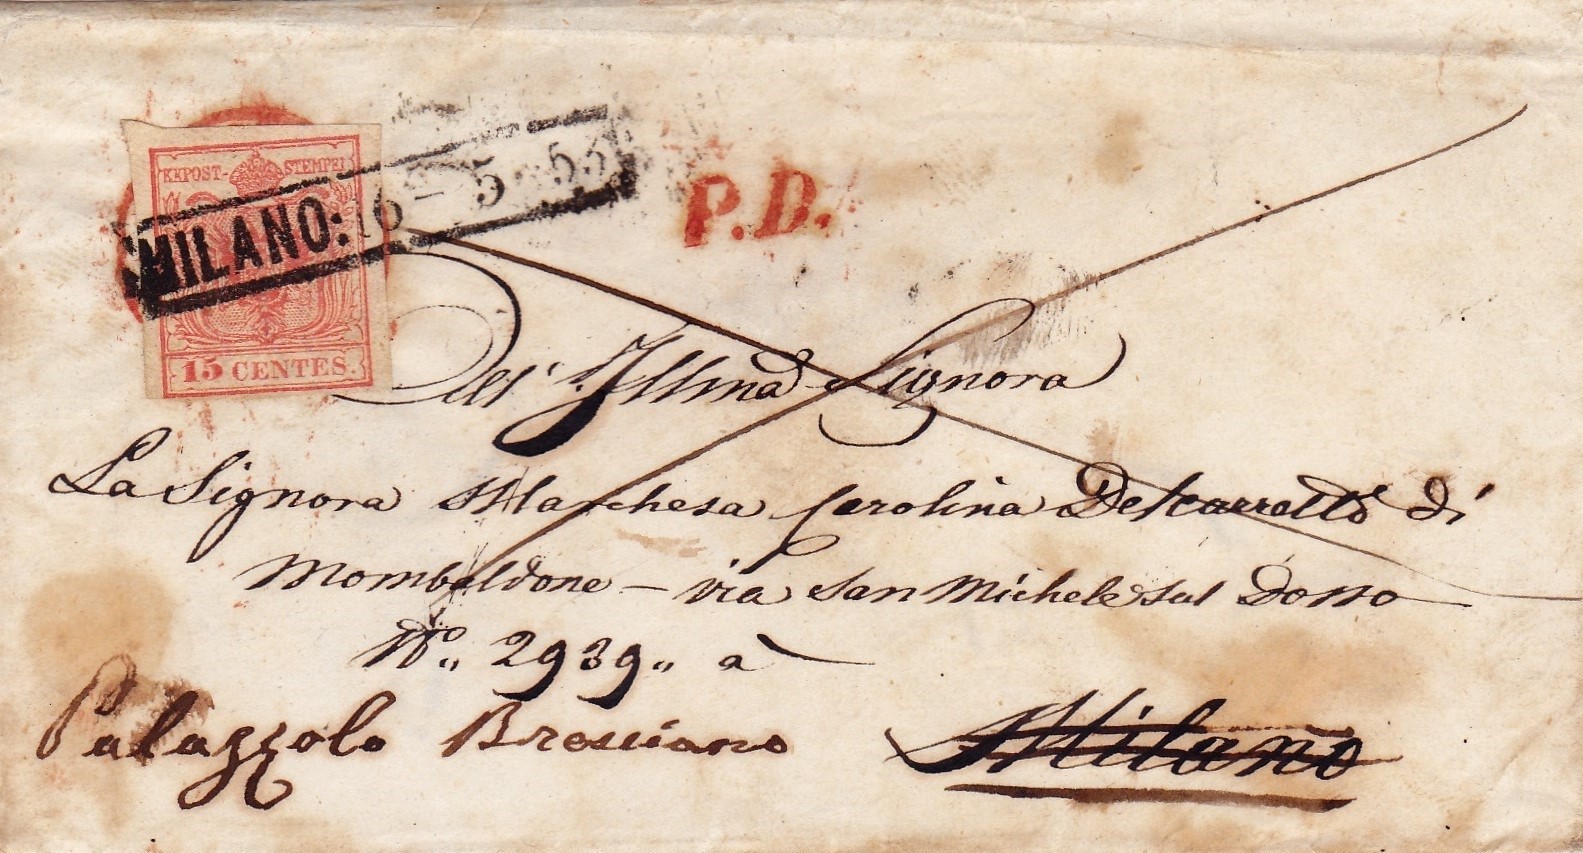 KKPOST-STEMPEL
MILANO: 16 - 5 - 53
15 CENTES.
P.D.
All' Illma Signora
La Signora Marchesa Carolina Delcarretto di
Mombaldone - via San Michele sul Dosso
N° 2939 a
Milano
Palazzolo Bresciano